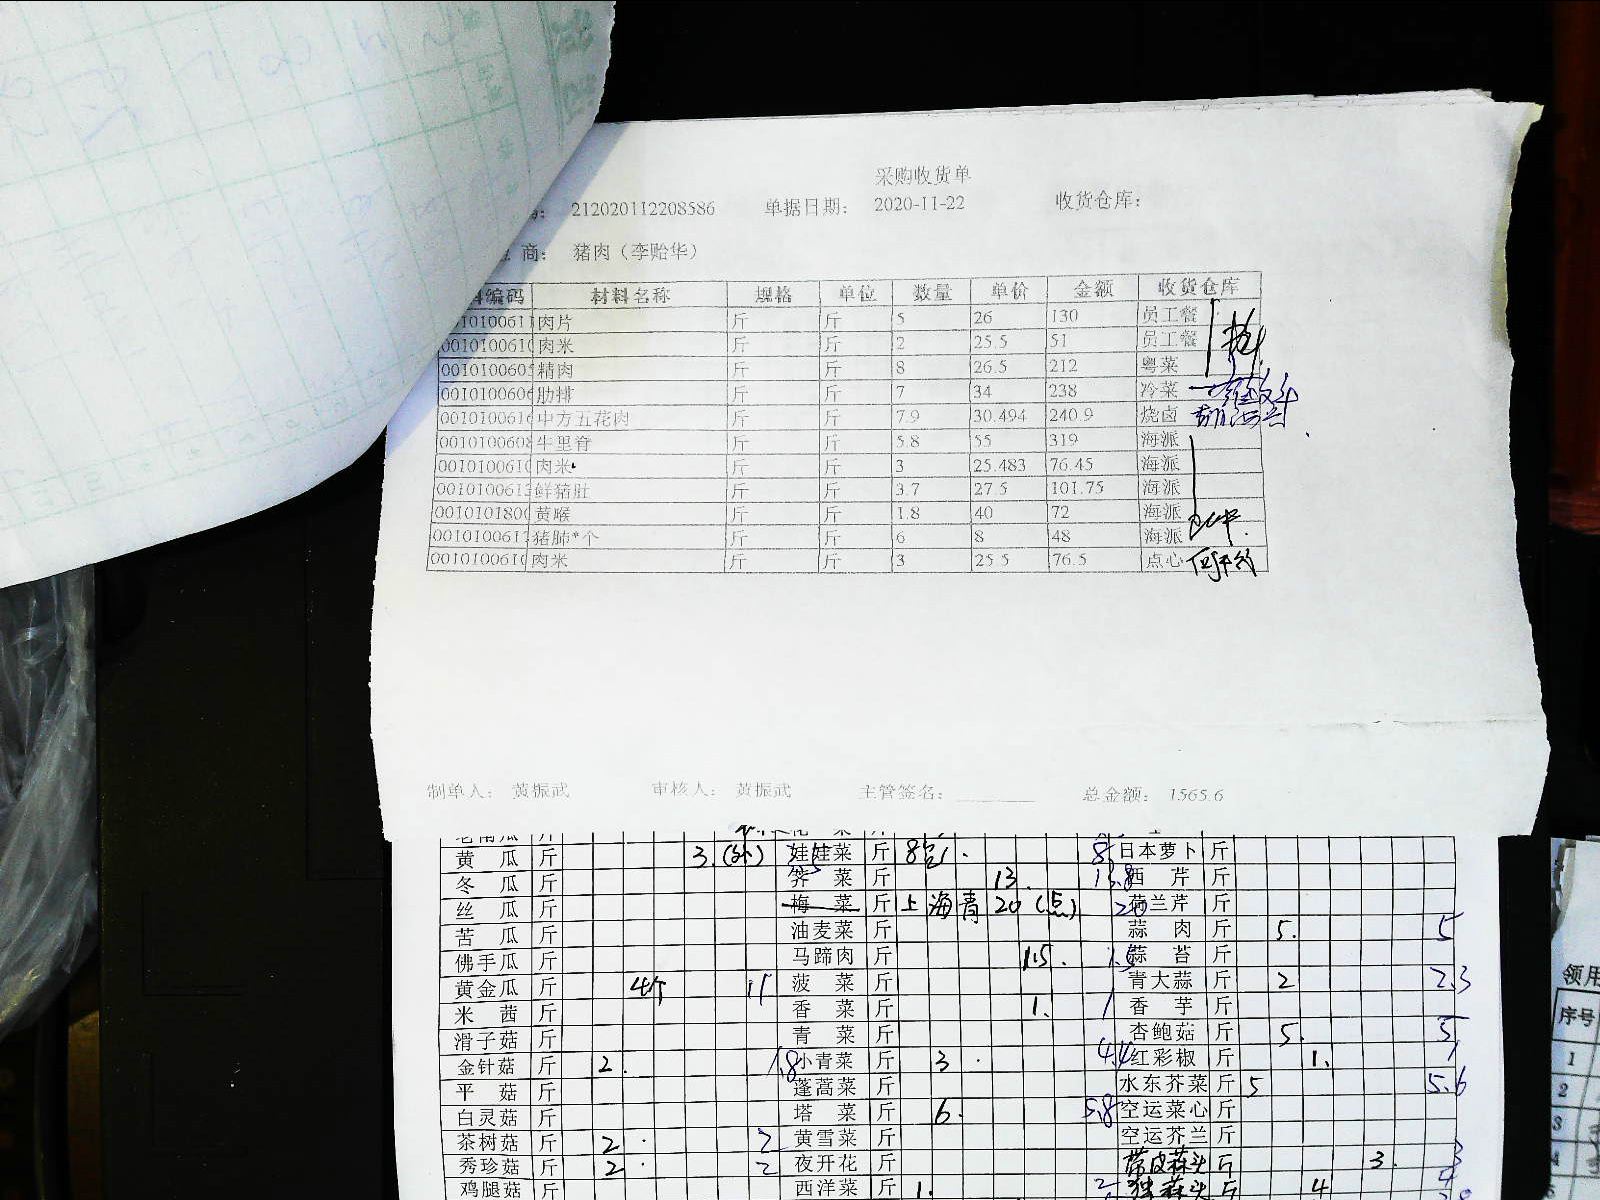 采购收货单
212020112208586 单据日期: 2020-11-22 收货仓库:
商: 猪肉（李贻华）
编码 材料名称 规格 单位 数量 单价 金额 收货仓库
肉片 斤 斤 5 26 130 员工餐
肉米 斤 斤 2 25.5 51 员工餐
精肉 斤 斤 8 26.5 212 粤菜
肋排 斤 斤 7 34 238 冷菜
中方五花肉 斤 斤 7.9 30.494 240.9 烧卤
牛里脊 斤 斤 5.8 55 319 海派
肉米 斤 斤 3 25.483 76.45 海派
鲜猪肚 斤 斤 3.7 27.5 101.75 海派
黄喉 斤 斤 1.8 40 72 海派
猪肺*个 斤 斤 6 8 48 海派
肉米 斤 斤 3 25.5 76.5 点心
制单人: 黄振武 审核人: 黄振武 主管签名: 总金额: 1565.6
黄瓜 斤 3. 娃娃菜 斤 8包 8 日本萝卜 斤
冬瓜 斤 荠菜 斤 13. 13.8 西芹 斤
丝瓜 斤 梅菜 斤 上海青 20 (点) 20 荷兰芹 斤
苦瓜 斤 油麦菜 斤 蒜肉 斤 5. 5
佛手瓜 斤 马蹄肉 斤 1.5. 1.5 蒜苔 斤
黄金瓜 斤 4个 菠菜 斤 青大蒜 斤 2 2.3
米茜 斤 香菜 斤 1. 1 香芋 斤
滑子菇 斤 青菜 斤 杏鲍菇 斤 5. 5
金针菇 斤 2. 1.8 小青菜 斤 3 4.4 红彩椒 斤 1. 1
平菇 斤 蓬蒿菜 斤 水东芥菜 斤 5 5.6
白灵菇 斤 塔菜 斤 6. 5.8 空运菜心 斤
茶树菇 斤 2 2 黄雪菜 斤 空运芥兰 斤
秀珍菇 斤 2 2 夜开花 斤 带皮蒜头 斤 3. 3
鸡腿菇 斤 西洋菜 斤 1. 2 独蒜头 斤 4 4
领用
序号
1
2
3
4